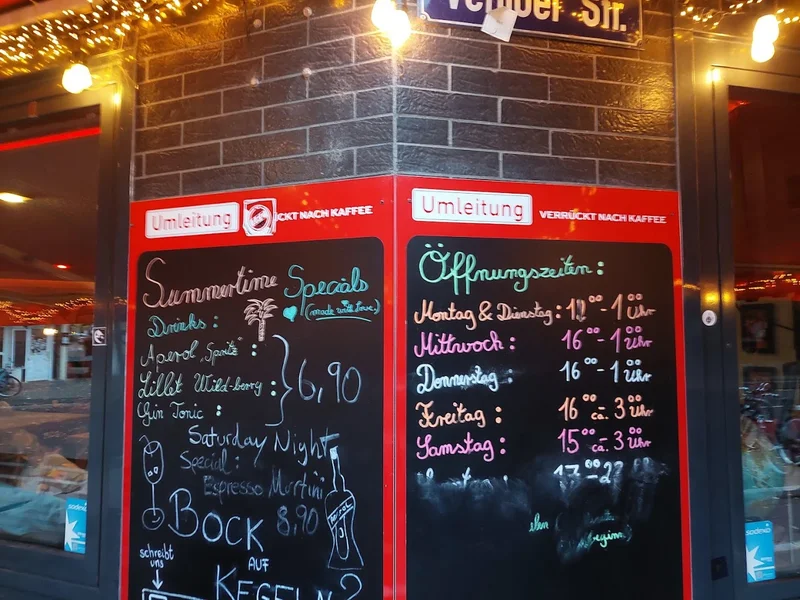 Str.
Umleitung
CKT NACH KAFFEE
Summertime Specials
(made with love)
Drinks:
Aperol „Spritz“ :
Lillet Wild-berry :
Gin Tonic :
6,90
Saturday Night
Special:
Espresso Martini
8,90
BOCK
AUF
KEGELN?
schreibt
uns
Umleitung
VERRÜCKT NACH KAFFEE
Öffnungszeiten:
Montag & Dienstag: - 1°° Uhr
Mittwoch: 16°° - 1°° Uhr
Donnerstag: 16°° - 1°° Uhr
Freitag: 16°° ca. 3°° Uhr
Samstag: 15°° ca. 3°° Uhr
17°°
sodexo
sodexo